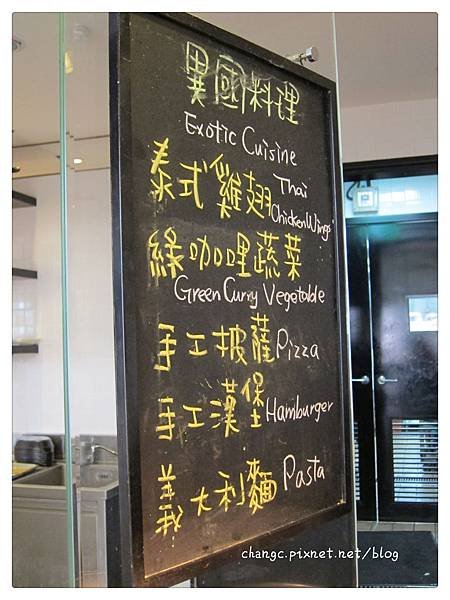 異國料理
Exotic Cuisine
泰式雞翅 Thai
Chicken Wings
綠咖哩蔬菜
Green Curry Vegetable
手工披薩 Pizza
手工漢堡 Hamburger
義大利麵 Pasta
changc.pixnet.net/blog